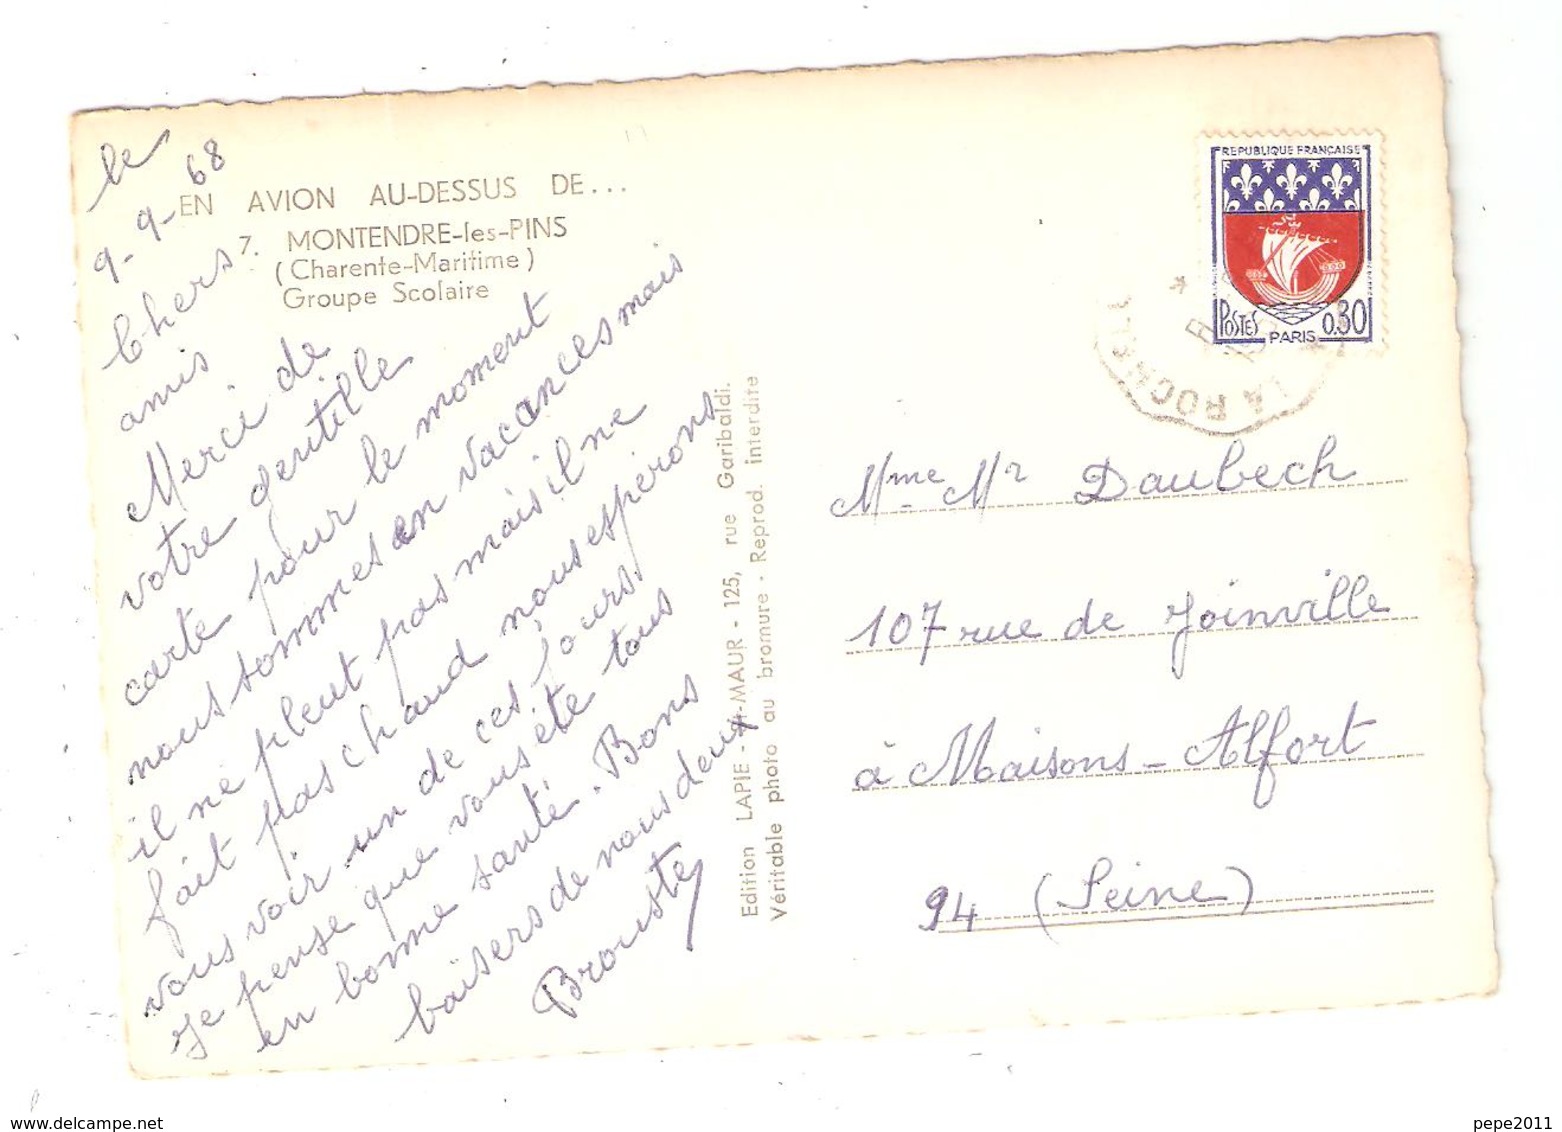 le
9-9-68
EN AVION AU-DESSUS DE...
7. MONTENDRE-les-PINS
(Charente-Maritime)
Groupe Scolaire
Chers
amis
Merci de
votre gentille
carte pour le moment
nous sommes en vacances mais
il ne pleut pas mais il ne
fait pas chaud nous espérons
vous voir un de ces jours.
Je pense que vous été tous
en bonne santé. Bons
baisers de nous deux
Brouste
Edition LAPIE - St-MAUR - 125, rue Garibaldi.
Véritable photo au bromure - Reprod. interdite
REPUBLIQUE FRANÇAISE
POSTES
0.30
PARIS
LA ROCHELLE
Mme Mr Daubech
107 rue de Joinville
à Maisons-Alfort
94 (Seine)
www.delcampe.net
pepe2011